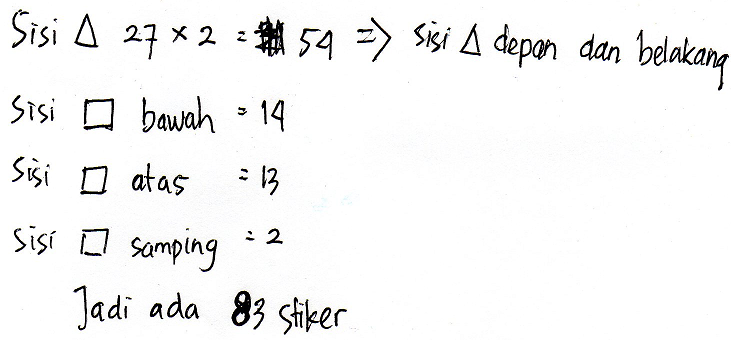 Sisi △ 27 × 2 = 54 => sisi △ depan dan belakang
Sisi □ bawah = 14
Sisi □ atas = 13
Sisi □ samping = 2
Jadi ada 83 stiker